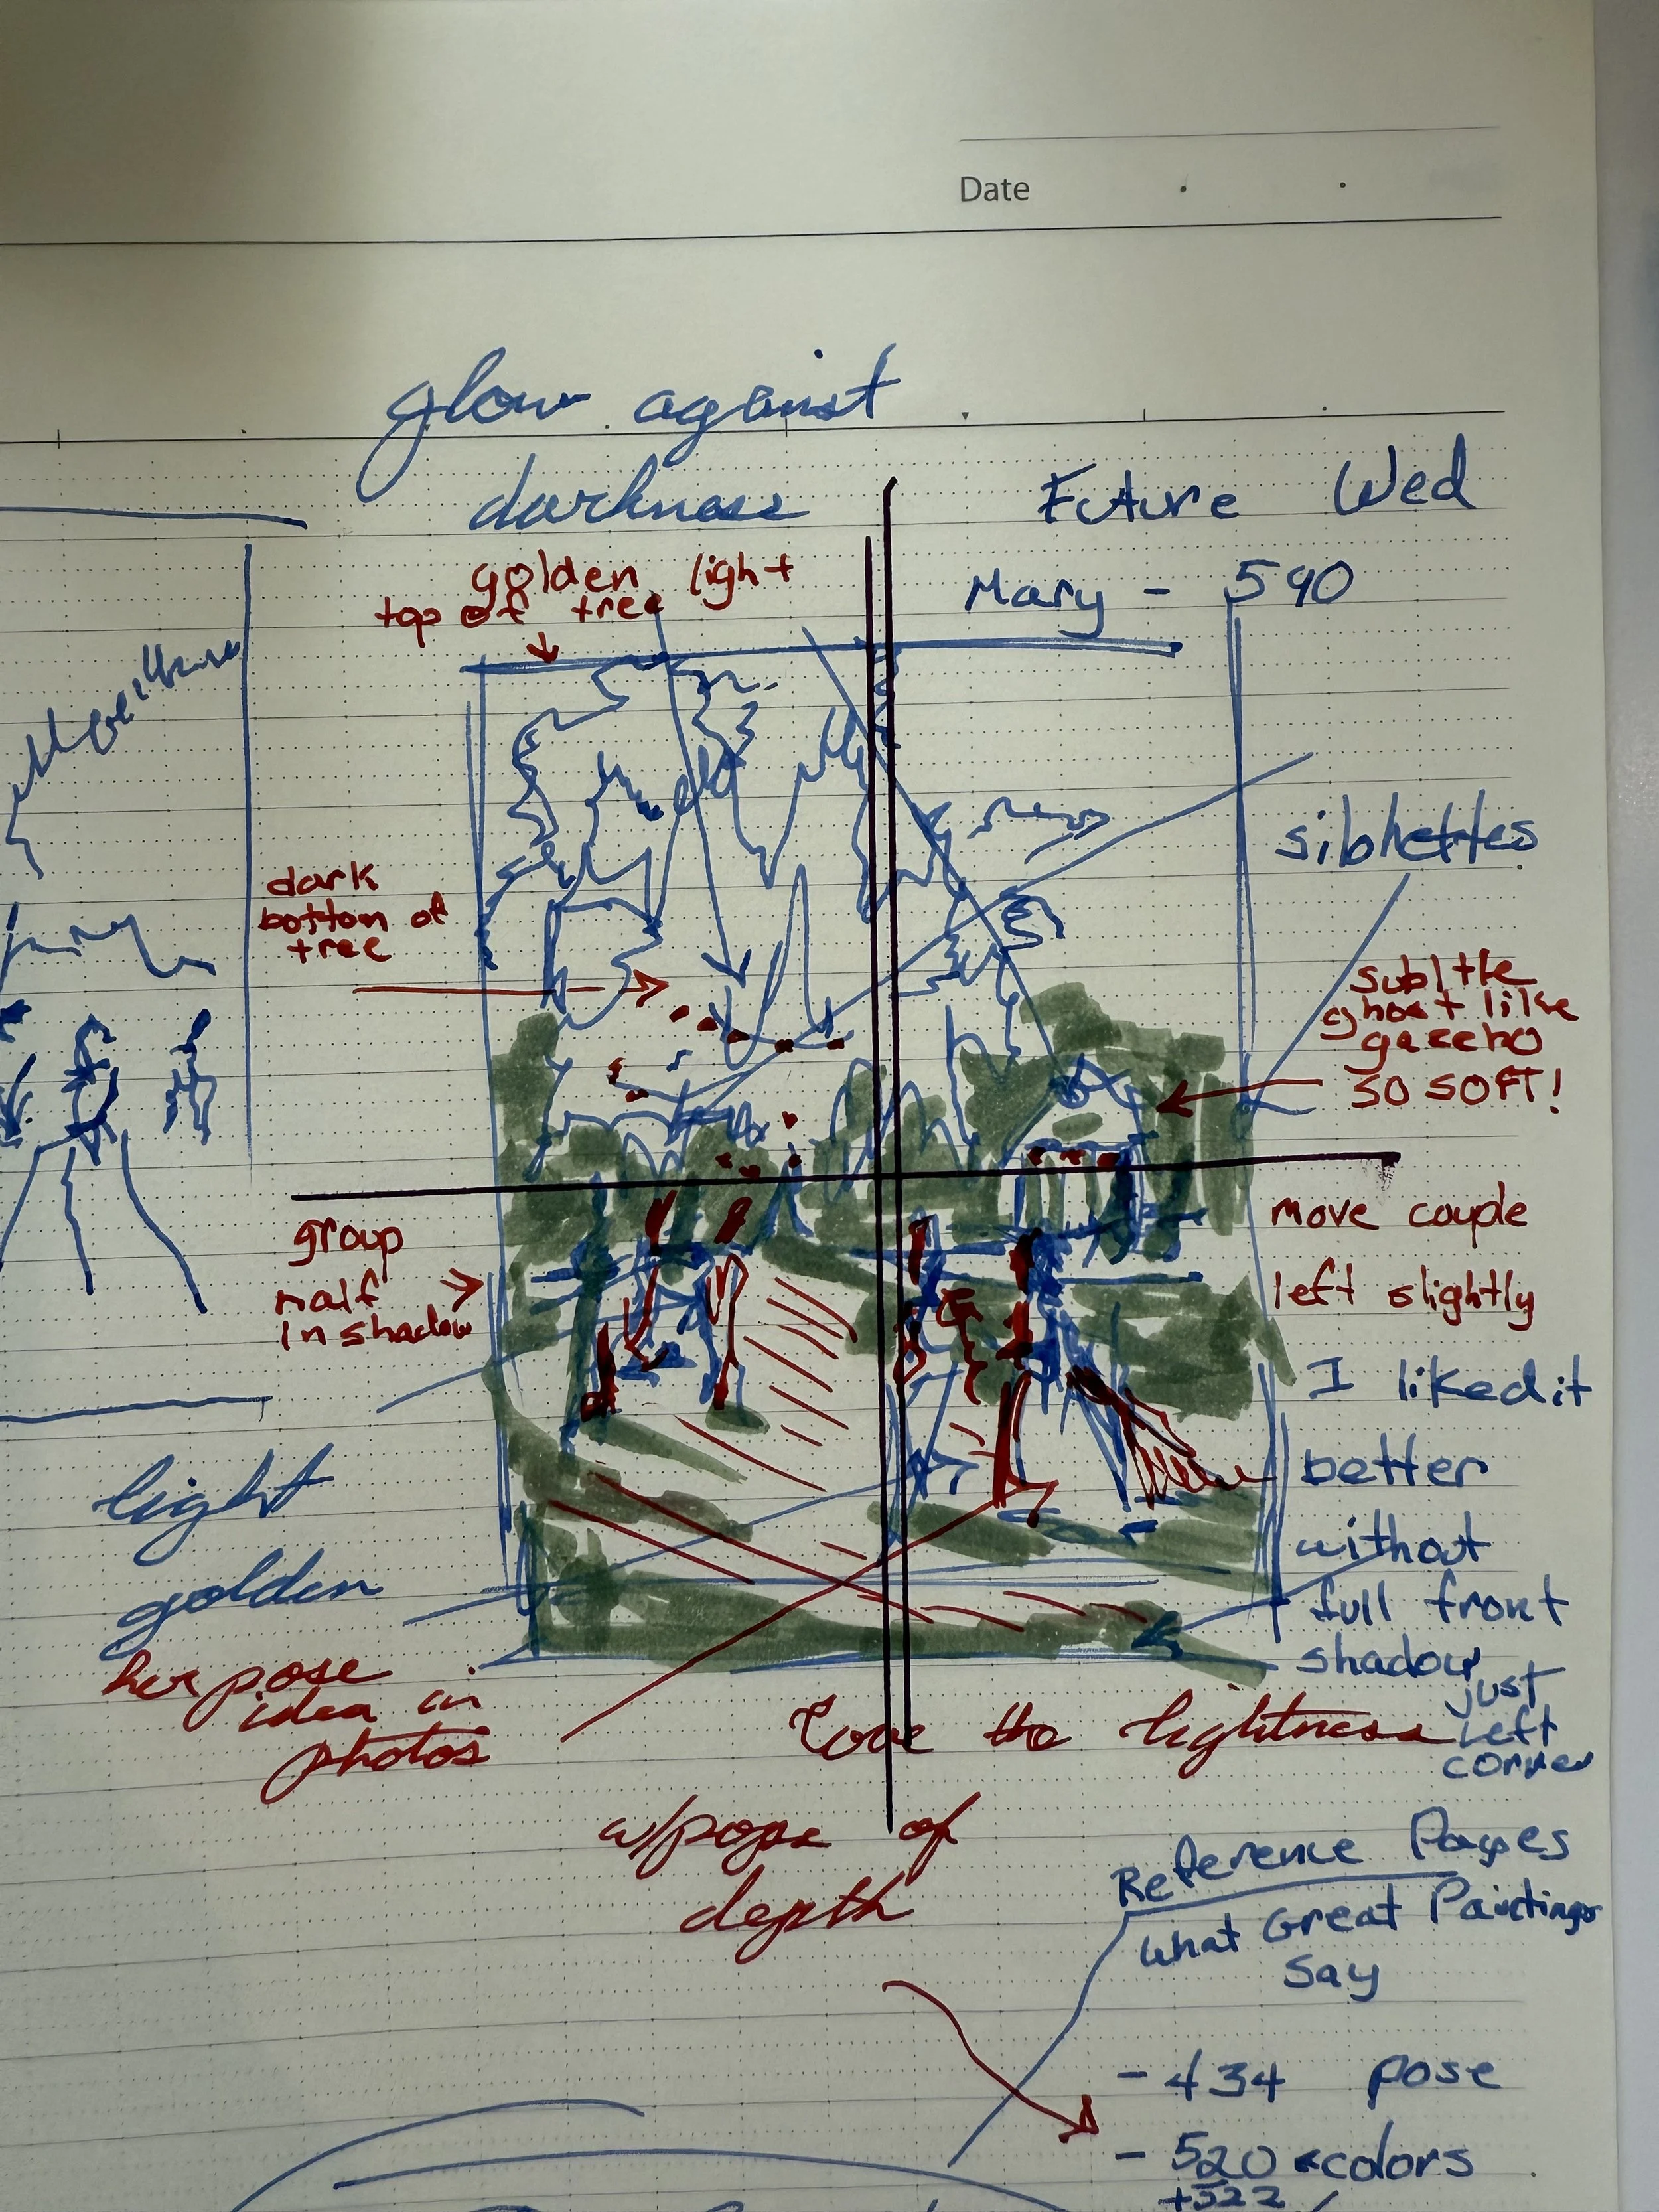 Date
glow against
darkness
Future Wed
Mary - 590
golden light
top of tree
silhettes
dark
bottom of
tree
subltle
ghost like
gazebo
SO SOFT!
group
half
in shadow
move couple
left slightly
I liked it
better
without
full front
shadow
just
left
corner
light
golden
her pose
idea in
photos
Love the lightness
w/pops of
depth
Reference Pages
What Great Paintings
Say
- 434 pose
- 520 colors
+522